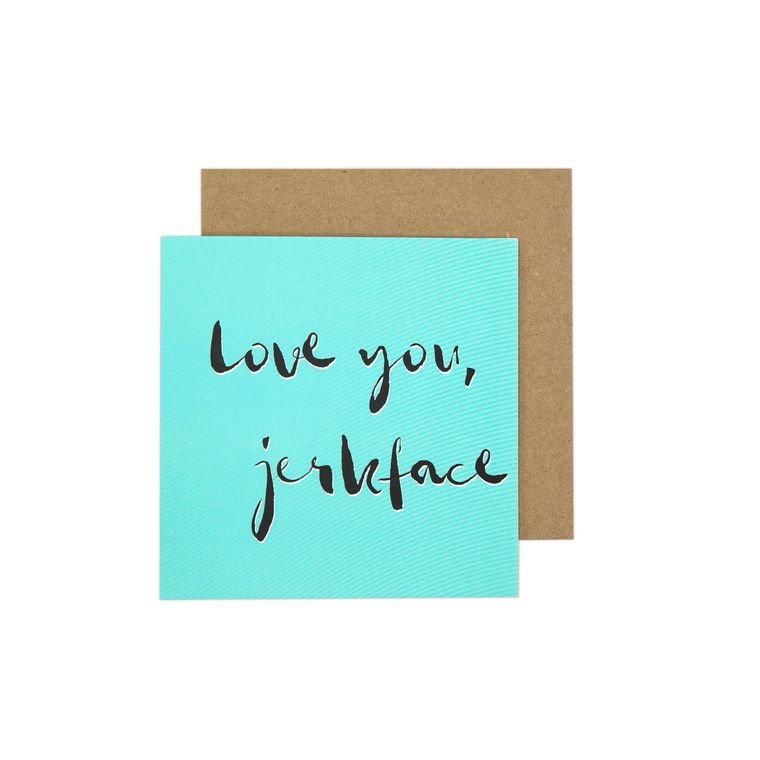 Love you,
jerkface